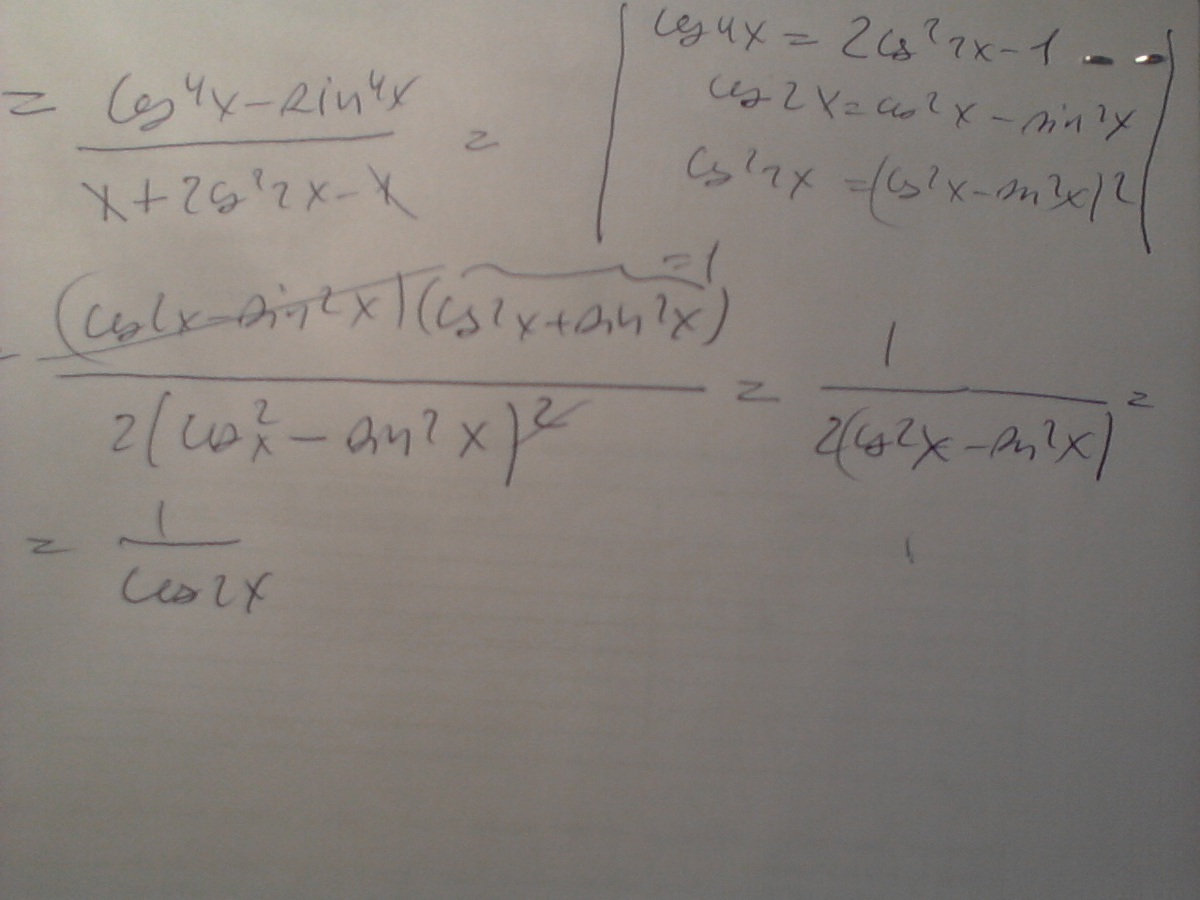 cos4x = 2cos²2x - 1
= cos⁴x - sin⁴x / x + 2cos²2x - x =
cos2x = cos²x - sin²x
cos²2x = (cos²x - sin²x)²
= (cos²x - sin²x)(cos²x + sin²x) =1 / 2(cos²x - sin²x)² = 1 / 2(cos²x - sin²x) =
= 1 / cos2x